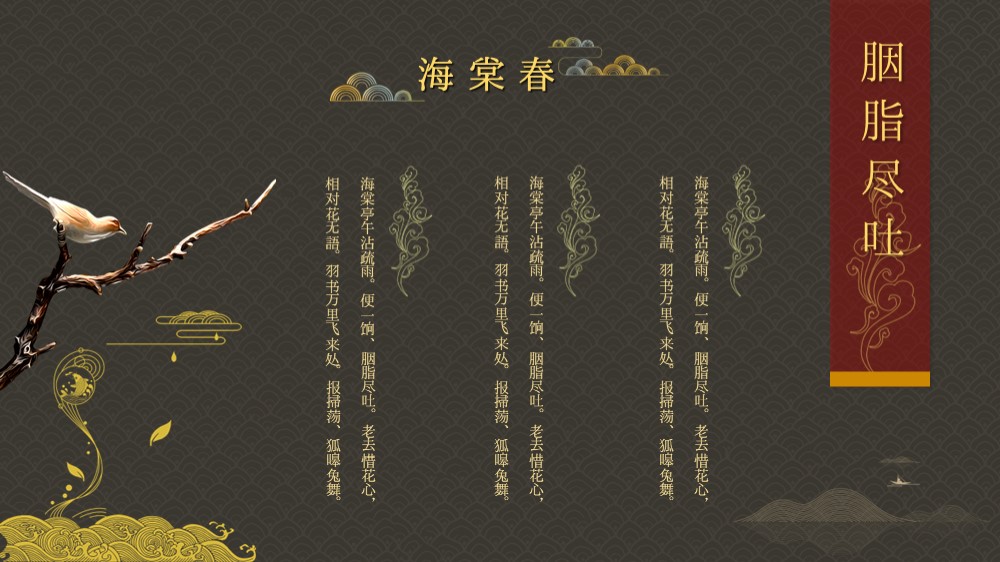 海棠春
胭脂尽吐
海棠亭午沾疏雨。便一饷、胭脂尽吐。老去惜花心，
相对花无語。羽书万里飞来处。报掃荡、狐嗥兔舞。
海棠亭午沾疏雨。便一饷、胭脂尽吐。老去惜花心，
相对花无語。羽书万里飞来处。报掃荡、狐嗥兔舞。
海棠亭午沾疏雨。便一饷、胭脂尽吐。老去惜花心，
相对花无語。羽书万里飞来处。报掃荡、狐嗥兔舞。